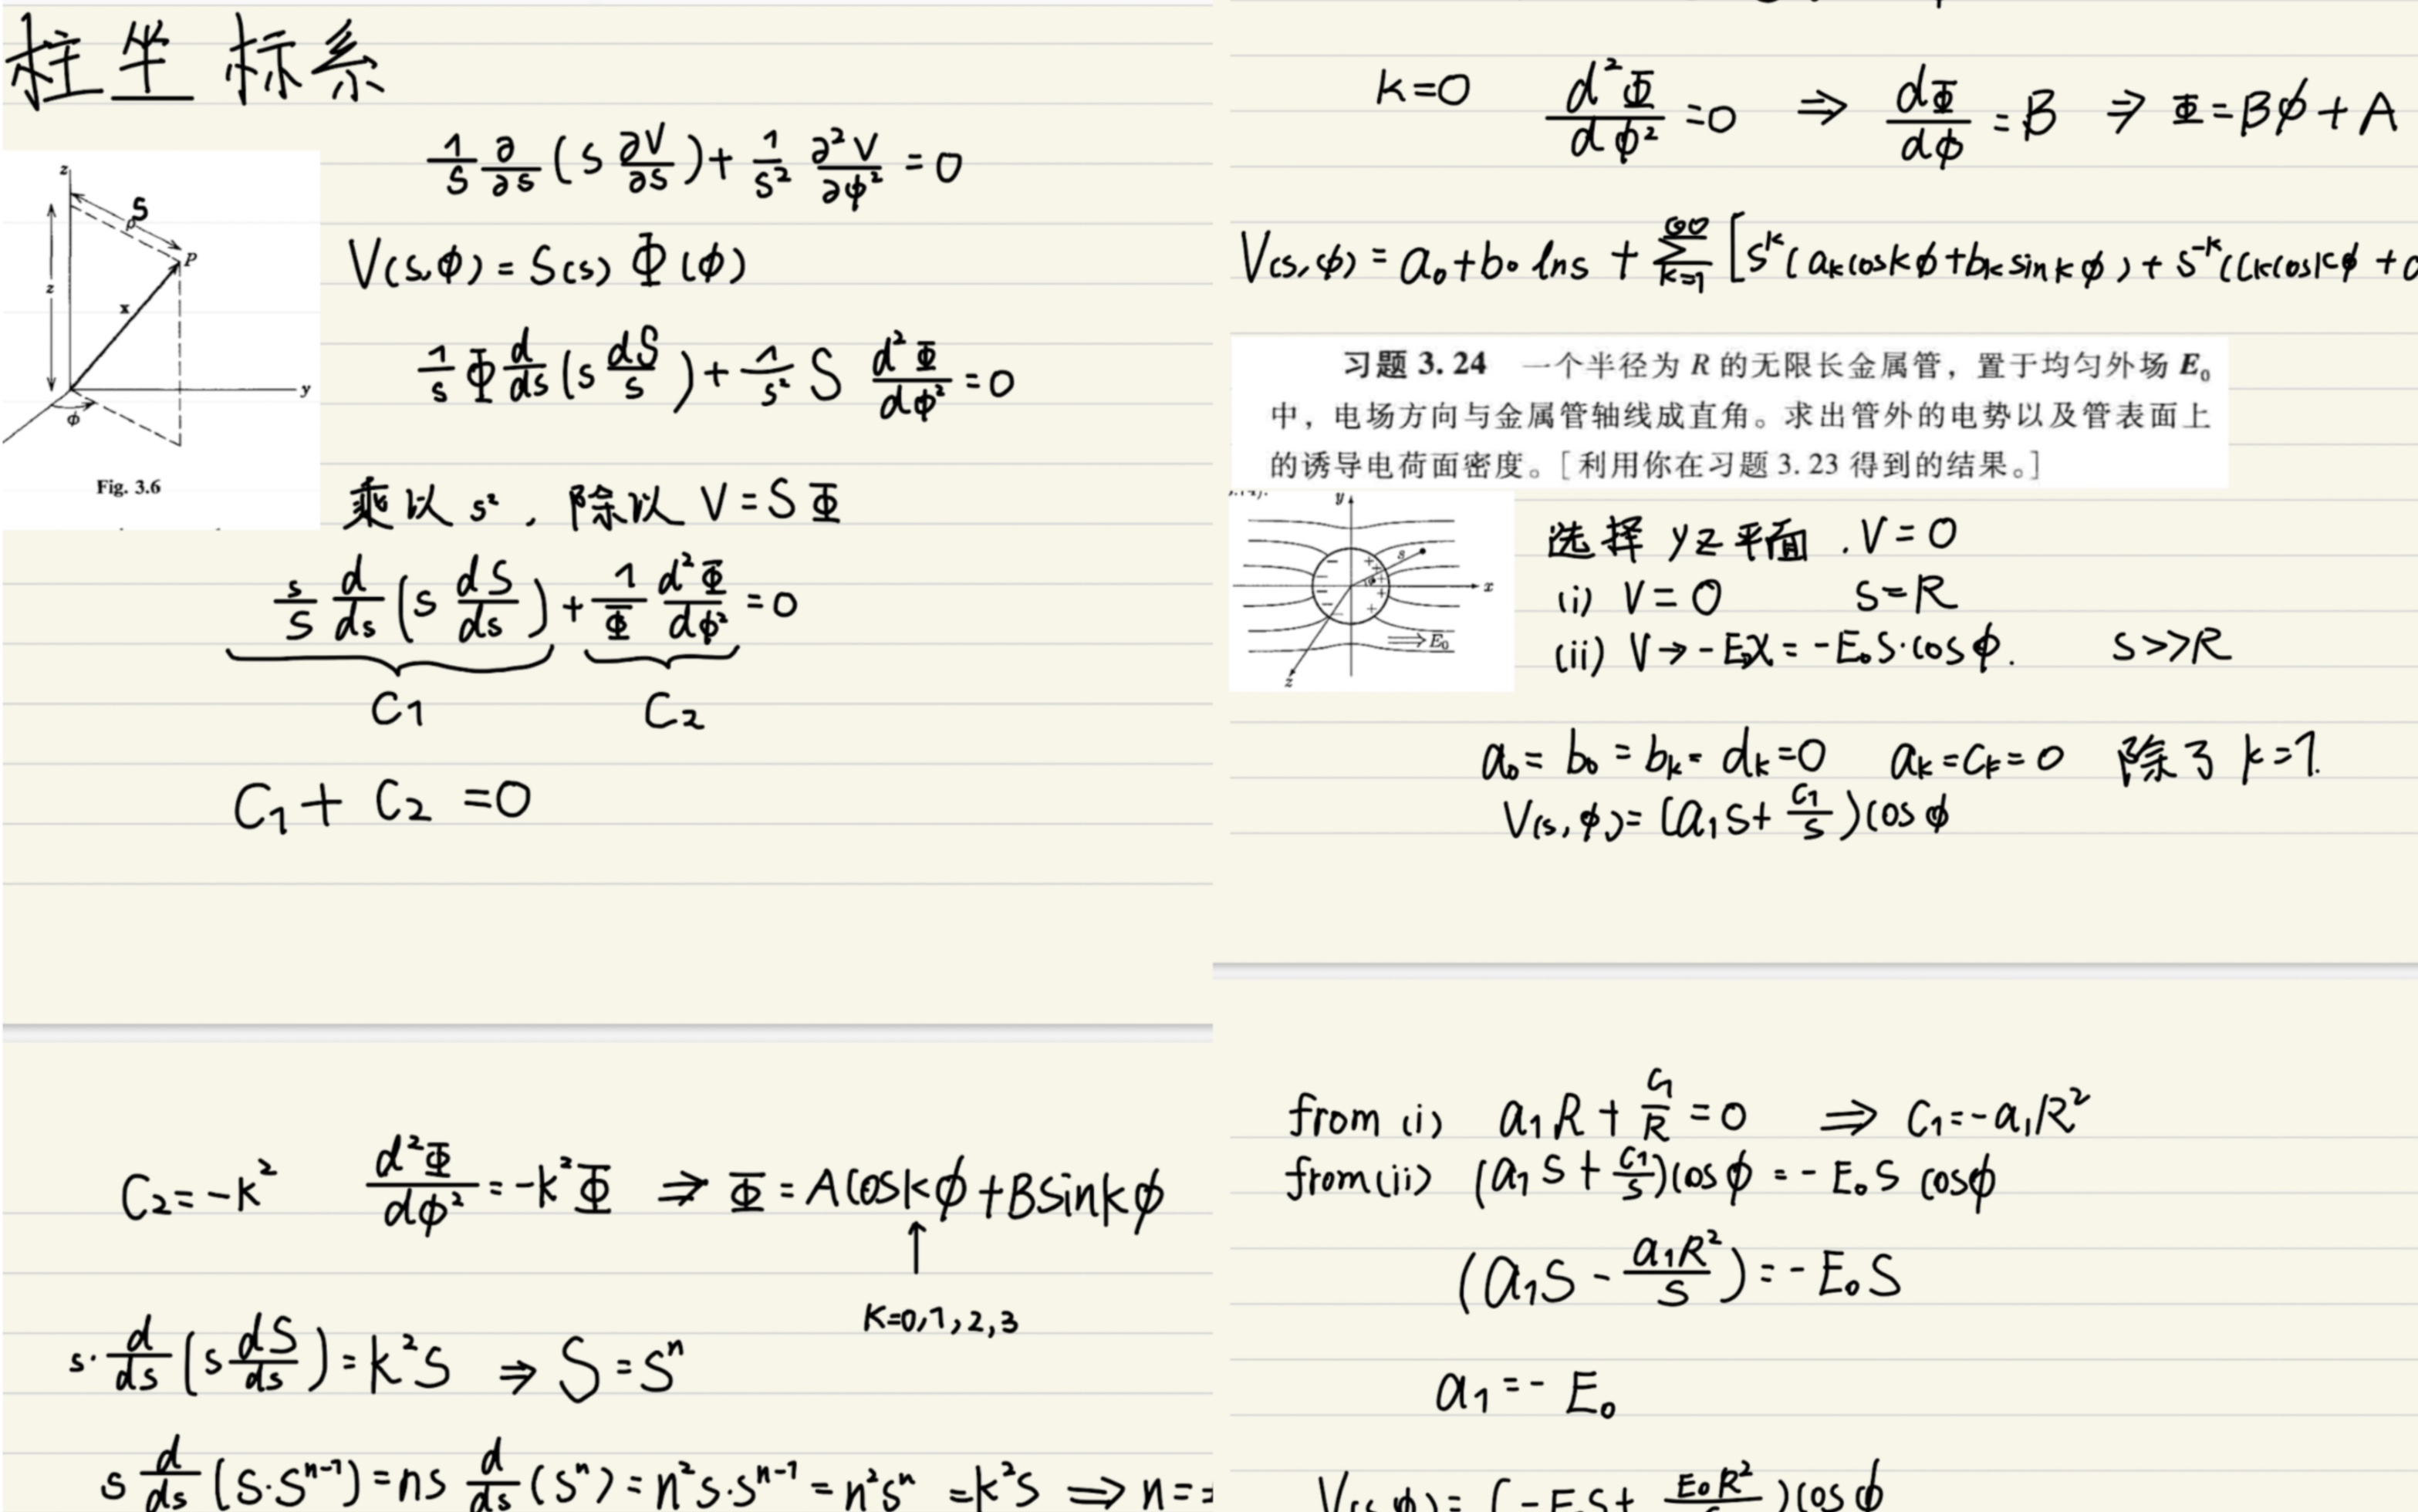 柱坐标系
1/s ∂/∂s (s ∂V/∂s) + 1/s² ∂²V/∂φ² = 0
z
S
ρ
P
z
x
y
φ
Fig. 3.6
V(s,φ) = S(s) Φ(φ)
1/s Φ d/ds (s dS/s) + 1/s² S d²Φ/dφ² = 0
乘以 s² , 除以 V = SΦ
s/S d/ds (s dS/ds) + 1/Φ d²Φ/dφ² = 0
C₁ C₂
C₁ + C₂ = 0
C₂ = -k² d²Φ/dφ² = -k²Φ ⇒ Φ = Acoskφ + Bsinkφ
↑
K=0,1,2,3
s· d/ds (s dS/ds) = k²S ⇒ S = sⁿ
s d/ds (s·sⁿ⁻¹) = ns d/ds (sⁿ) = n²s·sⁿ⁻¹ = n²sⁿ = k²S ⇒ n =
k=0 d²Φ/dφ² = 0 ⇒ dΦ/dφ = B ⇒ Φ = Bφ + A
V(s,φ) = a₀ + b₀ lns + ∑ₖ₌₁^∞ [sᵏ(aₖcoskφ + bₖsinkφ) + s⁻ᵏ(cₖcoskφ +
习题 3.24 一个半径为 R 的无限长金属管，置于均匀外场 E₀
中，电场方向与金属管轴线成直角。求出管外的电势以及管表面上
的诱导电荷面密度。[利用你在习题 3.23 得到的结果。]
y
s
φ
x
E₀
z
选择 yz平面 . V = 0
(i) V = 0 s = R
(ii) V → -E₀x = -E₀s·cosφ. s>>R
a₀ = b₀ = bₖ = dₖ = 0 aₖ = cₖ = 0 除了 k=1.
V(s,φ) = (a₁s + c₁/s)cosφ
from (i) a₁R + c₁/R = 0 ⇒ c₁ = -a₁R²
from (ii) (a₁s + c₁/s)cosφ = -E₀s cosφ
(a₁s - a₁R²/s) = -E₀s
a₁ = -E₀
V(s,φ) = (-E₀s + E₀R²/s)cosφ